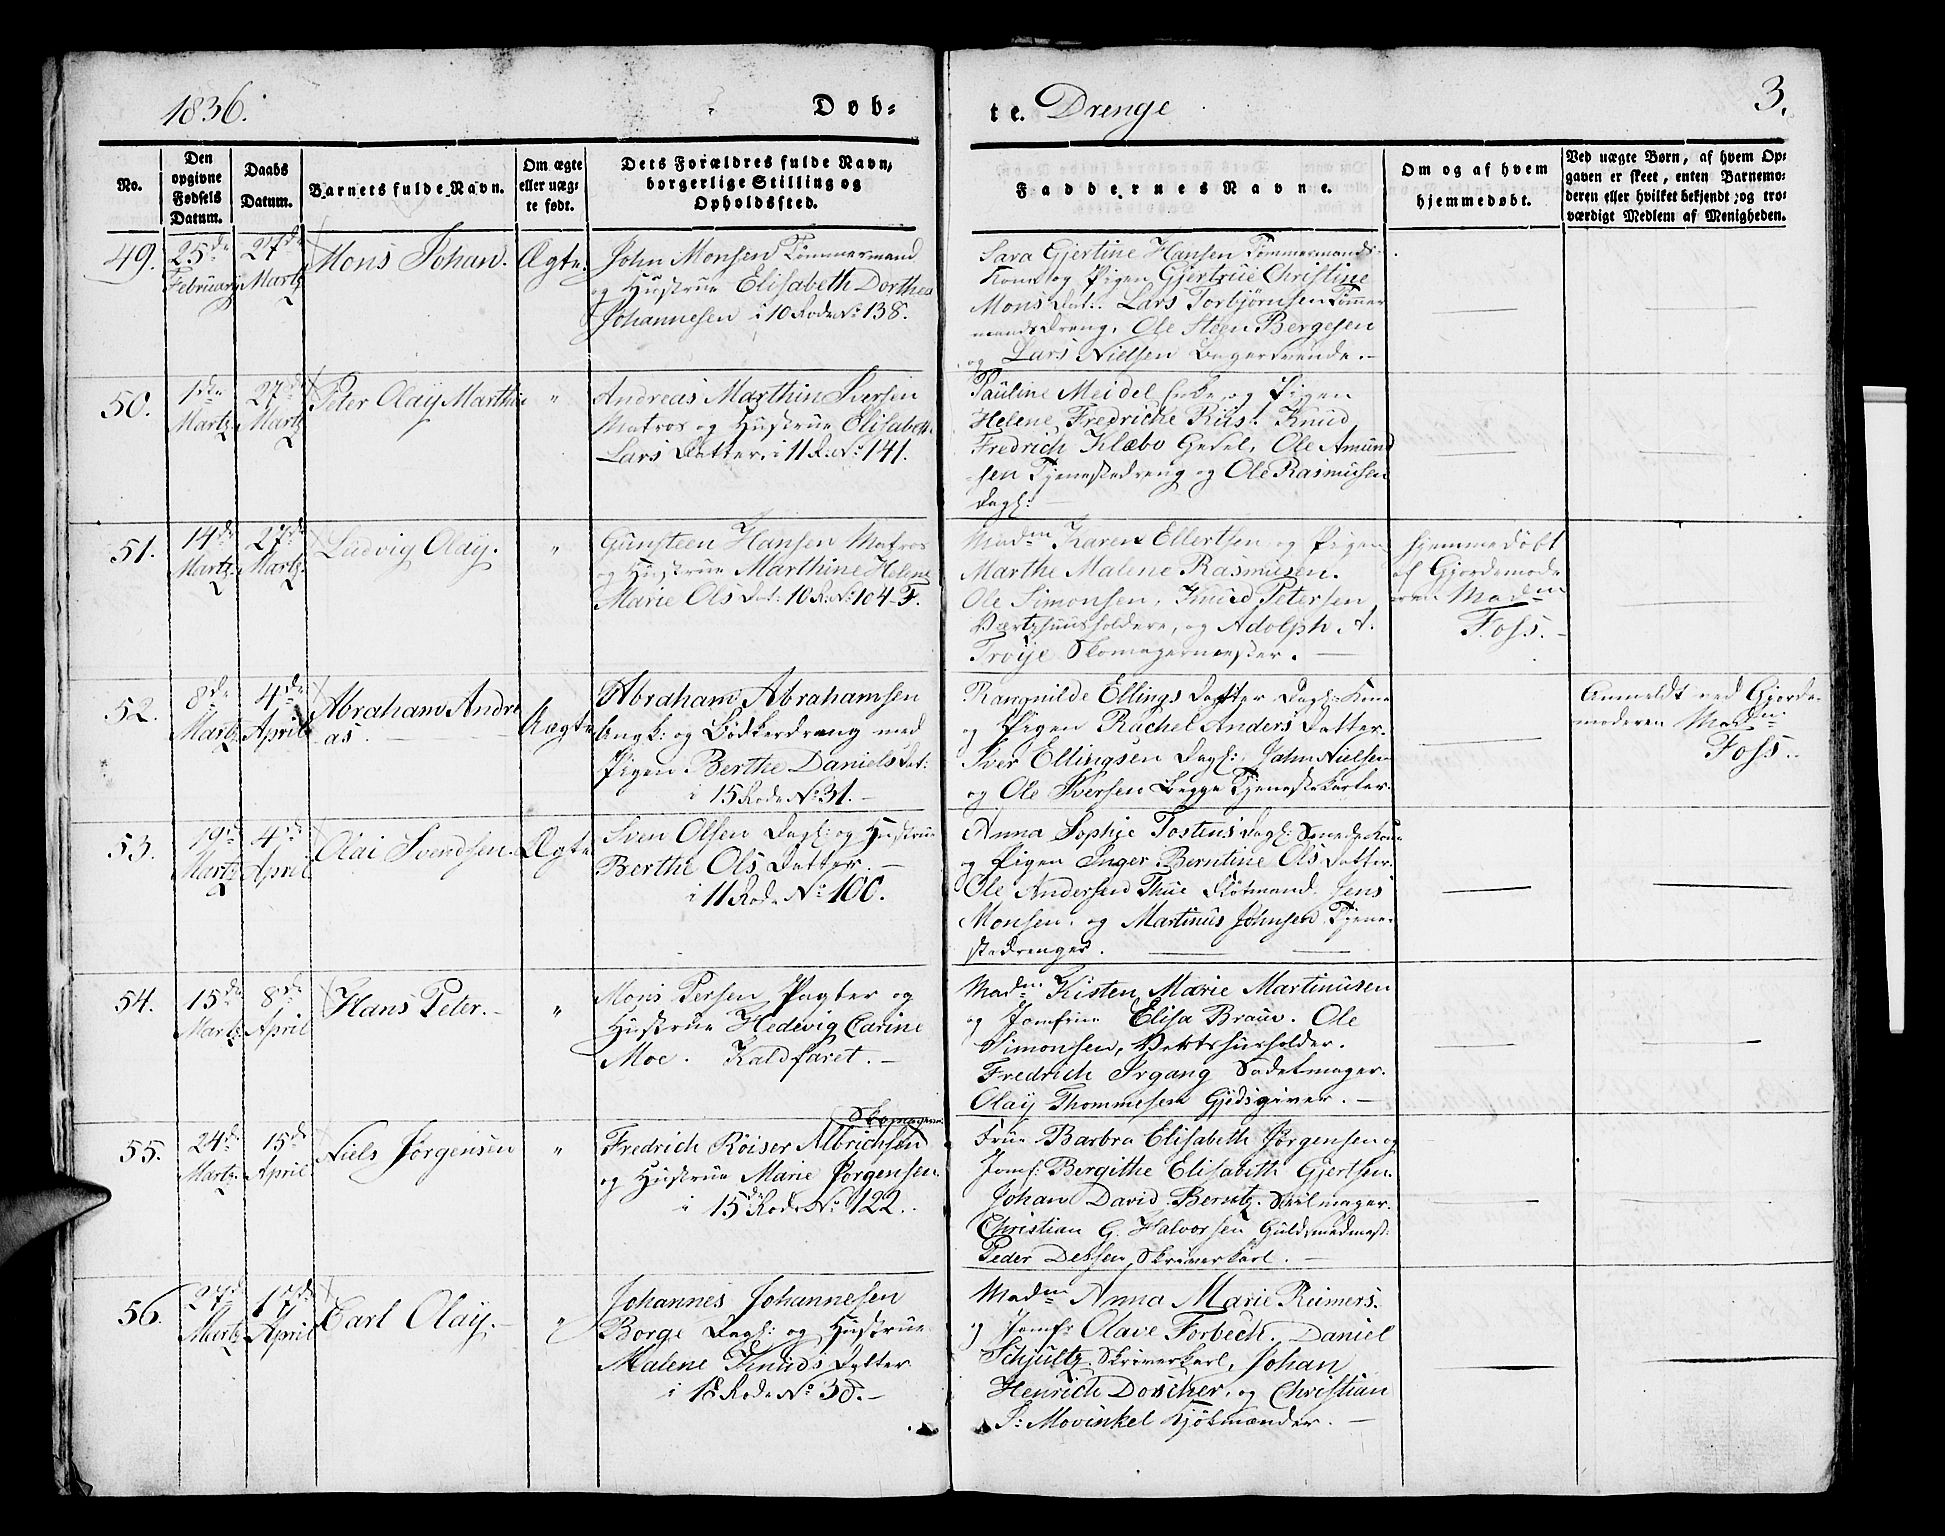 1836.
Døb-
te. Drenge
3.
No.
Den opgivne Fødsels Datum.
Daabs Datum.
Barnets fulde Navn.
Om ægte eller uægte født.
Dets Forældres fulde Navn, borgerlige Stilling og Opholdssted.
Faddernes Navne.
Om og af hvem hjemmedøbt.
Ved uægte Børn, af hvem Opgaven er skeet, enten Barnemoderen eller hvilket bekjendt og troværdigt Medlem af Menigheden.
49.
25de Februarj
27de Martz
Mons Johan.
Ægte.
John Monsen Tømmermand
og Hustrue Elisabeth Dorthea
Johannesen i 10 Rode No: 138.
Sara Gjertine Hansen Tømmermands
Kone og Pigen Gjertrue Christine
Mons Dat:. Lars Torbjørnsen Tømmer
mandsdreng, Ole Steen Bergesen
og Lars Nielsen Bagersvende.-
50.
1ste Martz
27de Martz
Peter Olaÿ Marthin
"
Andreas Marthin Iversen
Matros og Hustrue Elisabeth
Lars Datter. i 11 R. No: 141.
Pauline Meidel Enke, og Pigen
Helene Fredriche Riis. Knud
Fredrich Klæbo Gesel, Ole Amund
sen Tjenestedreng og Ole Rasmusen
Dagl:
51.
14de Martz.
27de Martz
Ludvig Olaÿ.
"
Gunsteen Hansen Matros
og Hustrue Marthine Helene
Marie Ols Dat: 10 R. No: 104 F.
Madm Karen Ellertsen og Pigen
Marthe Malene Rasmusen.
Ole Simonsen, Knud Petersen
Værtshuusholdere, og Adolph A.
Troije Skomagermester.
Hjemmedøbt
af Gjordemode
ren Madm
Foss.
52.
8de Martz
4de April
Abraham Andre
as.
Uægte
Abraham Abrahamsen
Ungk: og Bødkerdreng med
Pigen Berthe Daniels Dat:
i 15 Rode No 31.-
Rangnilde Ellings Datter Dagl: Kone
og Pigen Rachel Anders Datter.
Iver Ellingsen Dagl: John Nielsen
og Ole Iversen Begge Tjenestekarler.
Anmeldt ved Gjorde-
moderen Madm
Foss..
53.
19de Martz
4de April
Olai Svendsen.
Ægte
Sven Olsen Dagl: og Hustrue
Berthe Ols Datter.-
i 11 Rode No: 100.
Anna Sophje Tostens Dagl: Kone
og Pigen Inger Berntine Ols Datter.
Ole Andersen Thue Fløtmand. Jens
Monsen. og Martinus Johnsen Tjene-
stedrenger.
54.
15de Martz
8de April
Hans Peter.-
"
Mons Persen Pagter og
Hustrue Hedevig Carine
Moe. Kaldfaret.-
Madm Kisten Marie Martinusen
og Jomfrue Elisa Bruun. Ole
Simonsen, Vertshusholder.
Fredrich Irgang Sadelmager.
Olaÿ Thommesen Gjedsgiver.-
55.
24de Martz
15de April
Niels Jørgensen
"
Skomagerm:
Fredrich Röiser Albrichsen
og Hustrue Marie Jørgensen
i 15de Rode No: 122.
Frue Barbra Elisabeth Jørgensen og
Jomf: Bergithe Elisabeth Gjertsen.
Johan David Berntz. Seilmager.
Christian G. Halvorsen Guldsmedmest:
Peder Debsen Skriverkarl.-
56.
27de Martz
17de April
Carl Olaÿ.-
"
Johannes Johannesen
Borge Dagl: og Hustrue
Malene Knuds Datter
i 18 Rode No 38.-
Madm Anna Marie Reimers.
og Jomfr Olave Forbech. Daniel
Schjultz Skriverkarl, Johan
Henrich Doscher, og Christian
T: Movinkel Kjøbmænder.-